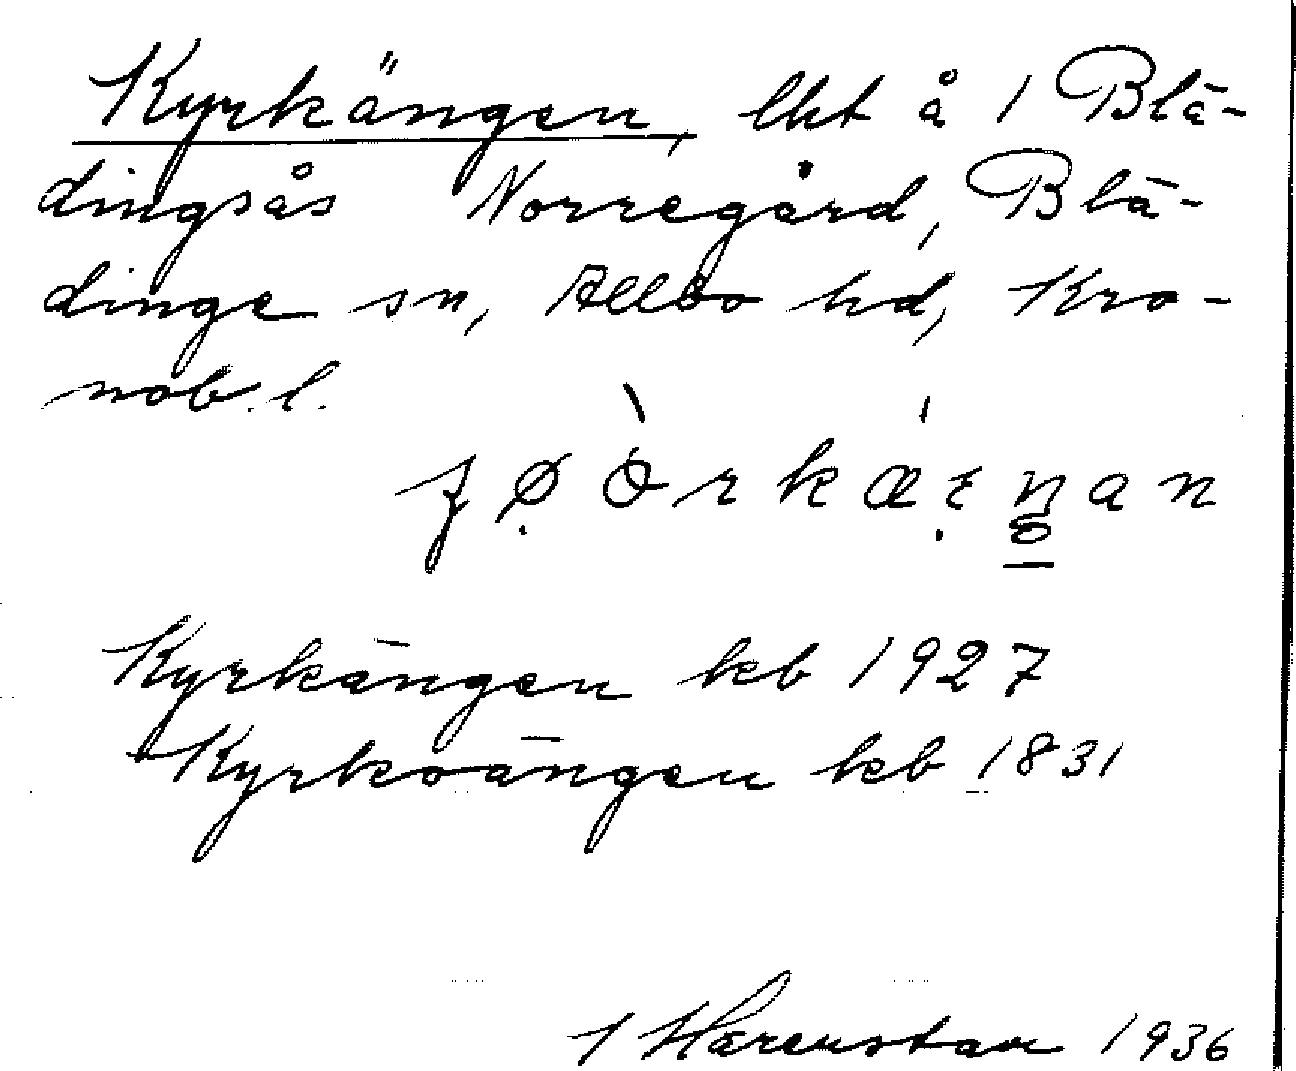 Kyrkängen, lht å 1 Blä-
dingsås Norregård, Blä-
dinge sn, Allbo hd, Kro-
nob. l.
Kyrkängen kb 1927
Kyrkoängen kb 1831
1936